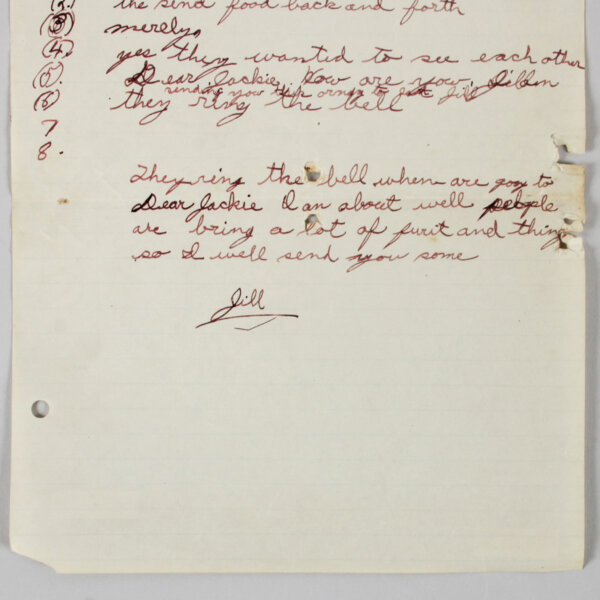 (2.) the send food back and forth
(3) merely,
(4.) yes they wanted to see each other
(5). Dear Jackie. How are you.
sending you this to Jill
(6) they ring the bell
7
8.
They ring the bell when are goy to
Dear Jackie I an about well people
are bring a lot of furit and things
so I well send you some
Jill